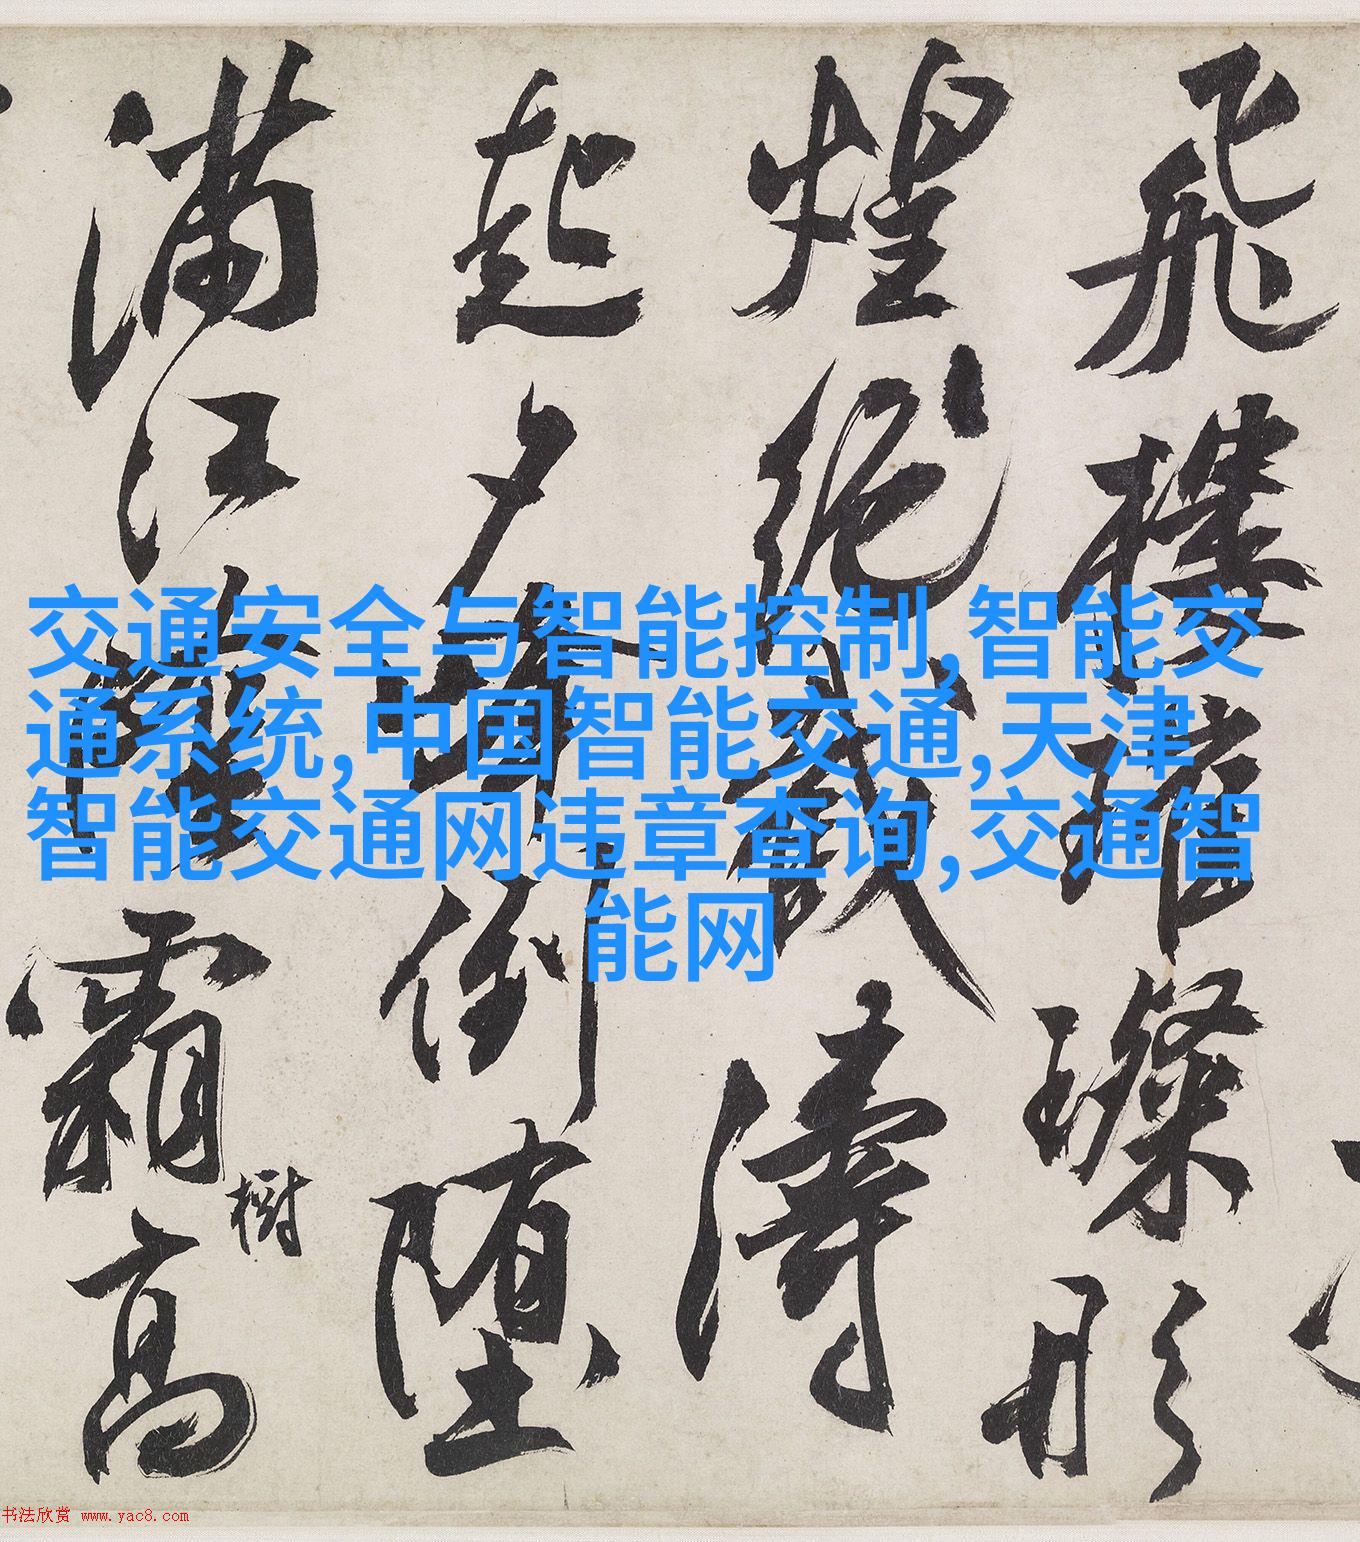 交通安全与智能控制,智能交
通系统,中国智能交通,天津
智能交通网违章查询,交通智
能网
飛樓璀璨形
煌濤
起夕倒堕
滿江霜高
樹
书法欣赏 www.yac8.com